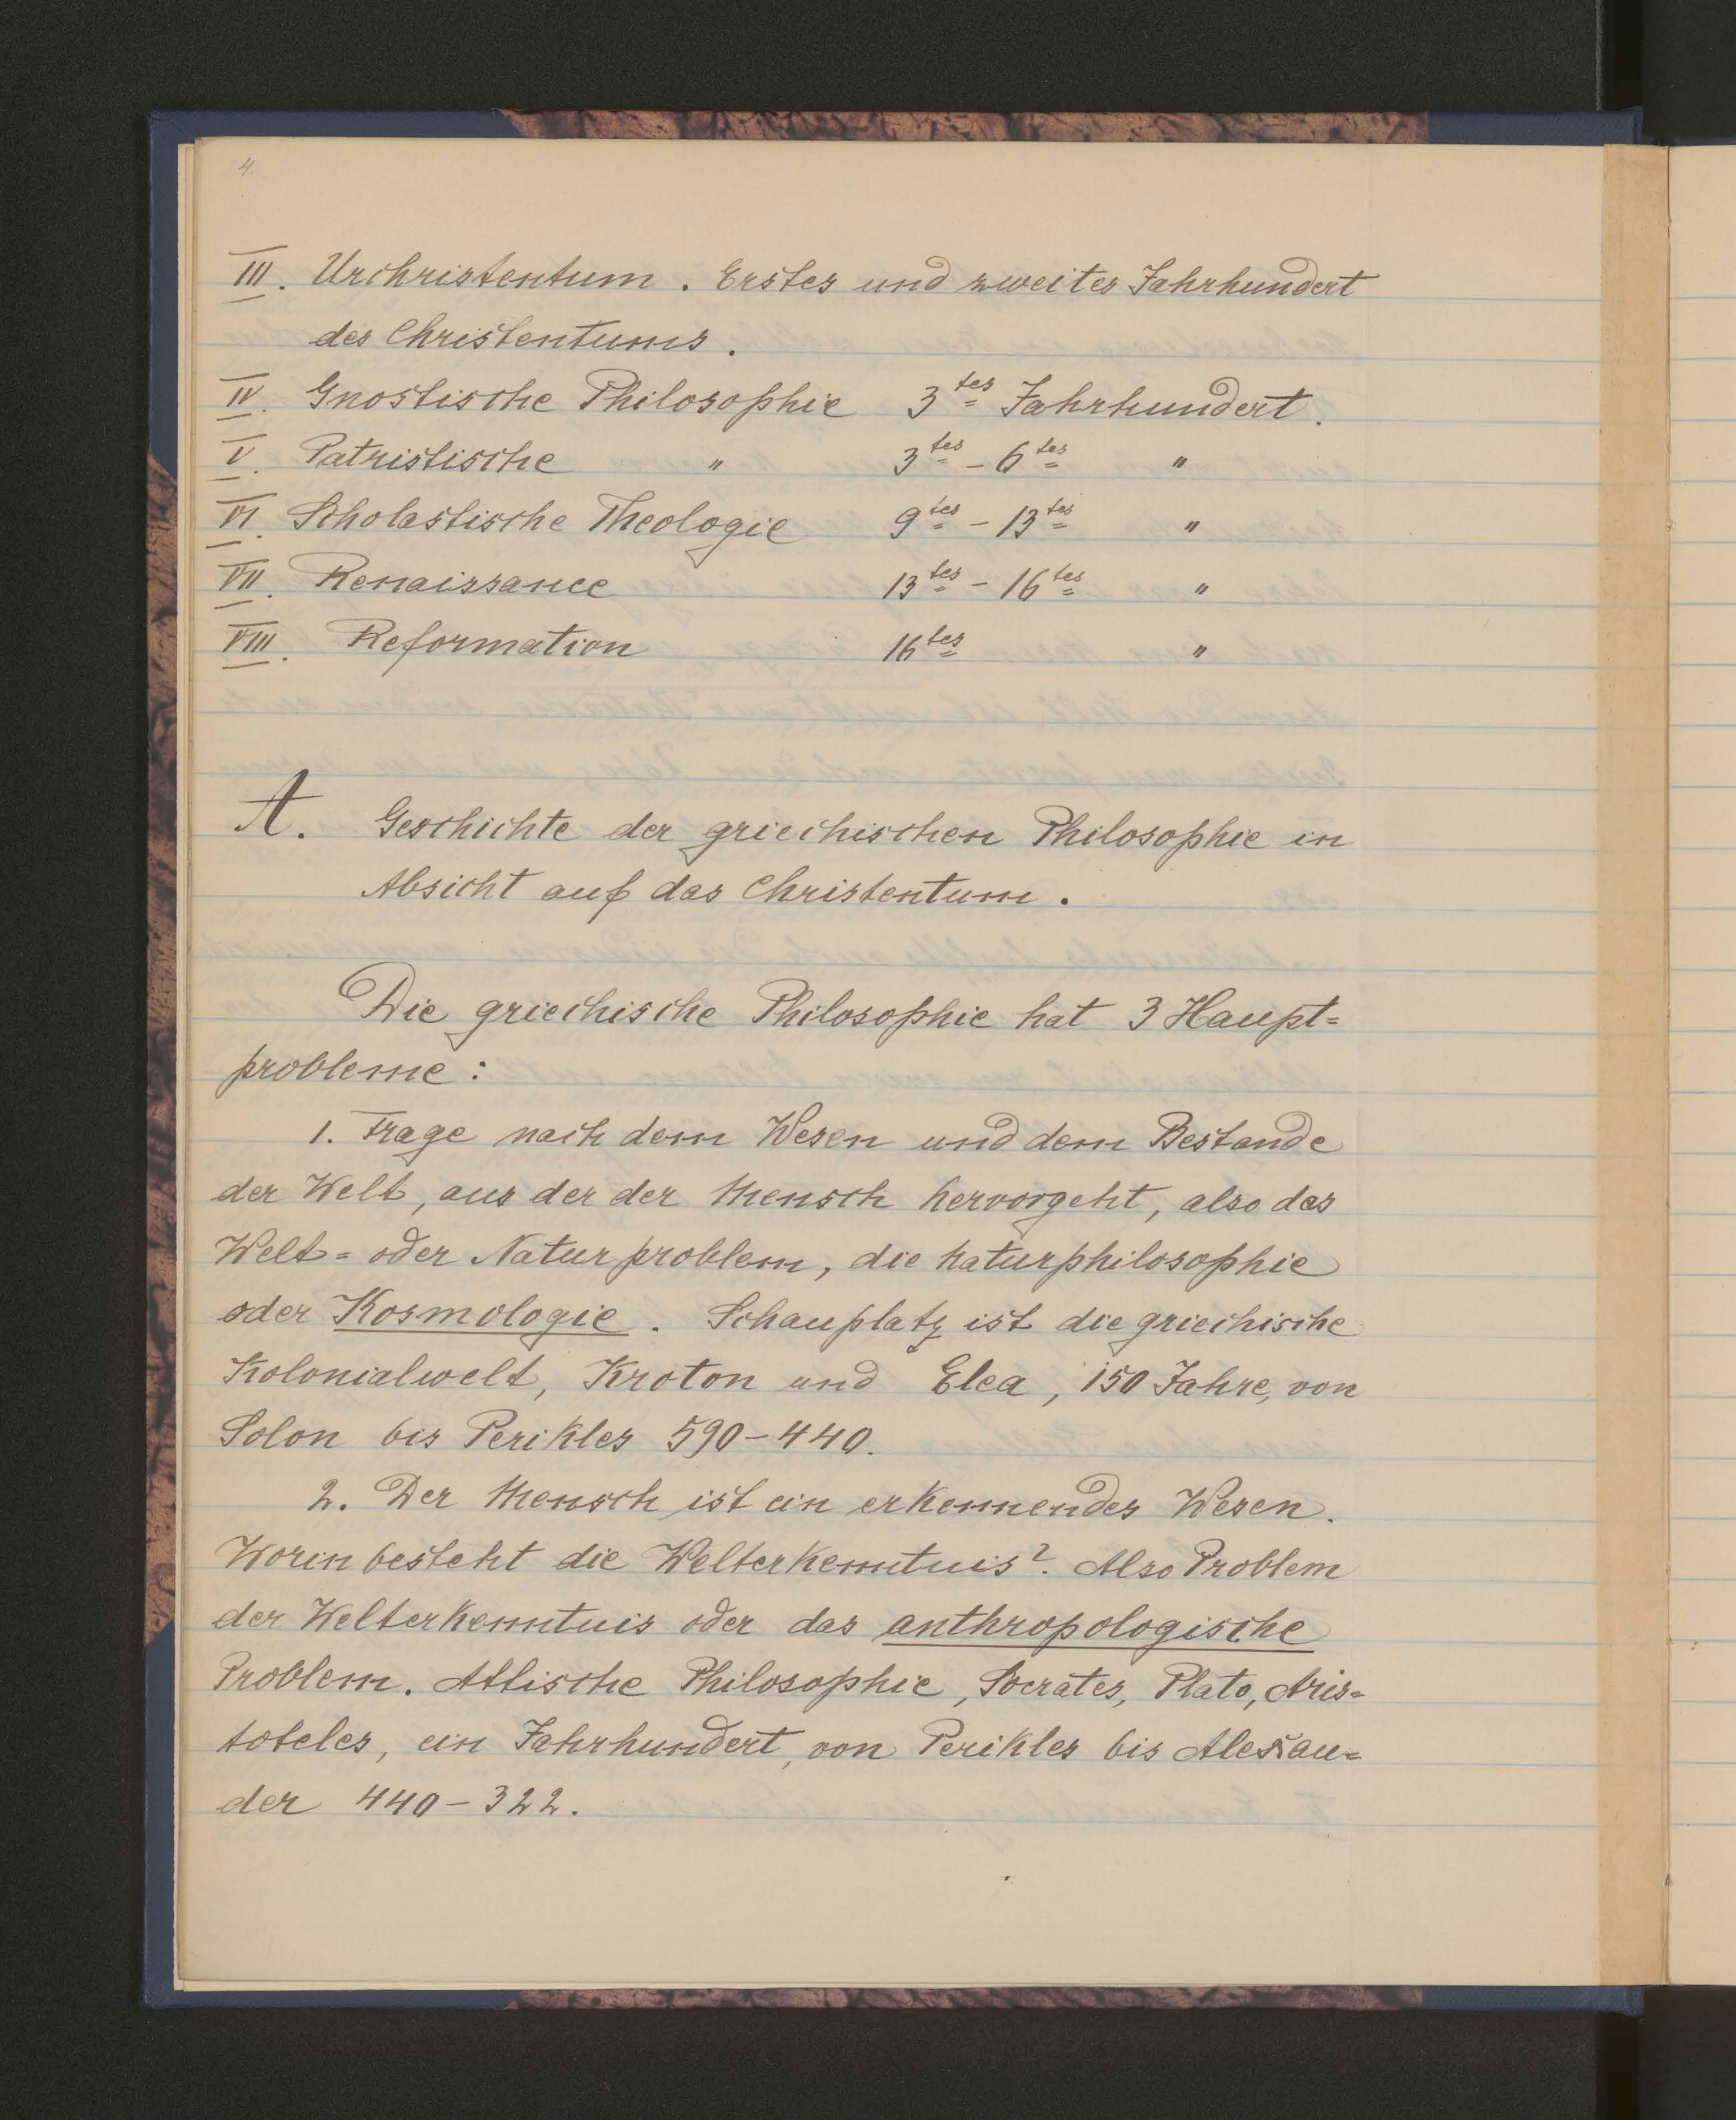 4.
III. Urchristentum. Erstes und zweites Jahrhundert
des Christentums.
IV. Gnostische Philosophie 3tes Jahrhundert.
V. Patristische " 3tes - 6tes "
VI. Scholastische Theologie 9tes - 13tes "
VII. Renaissance 13tes - 16tes "
VIII. Reformation 16tes "
A. Geschichte der griechischen Philosophie in
Absicht auf das Christentum.
Die griechische Philosophie hat 3 Haupt=
probleme:
1. Frage nach dem Wesen und dem Bestande
der Welt, aus der der Mensch hervorgeht, also das
Welt= oder Naturproblem, die Naturphilosophie
oder Kosmologie. Schauplatz ist die griechische
Kolonialwelt, Kroton und Elea, 150 Jahre, von
Solon bis Perikles 590-440.
2. Der Mensch ist ein erkennendes Wesen.
Worin besteht die Welterkenntnis? Also Problem
der Welterkenntnis oder das anthropologische
Problem. Attische Philosophie, Socrates, Plato, Aris=
toteles, ein Jahrhundert, von Perikles bis Alexan=
der 440-322.